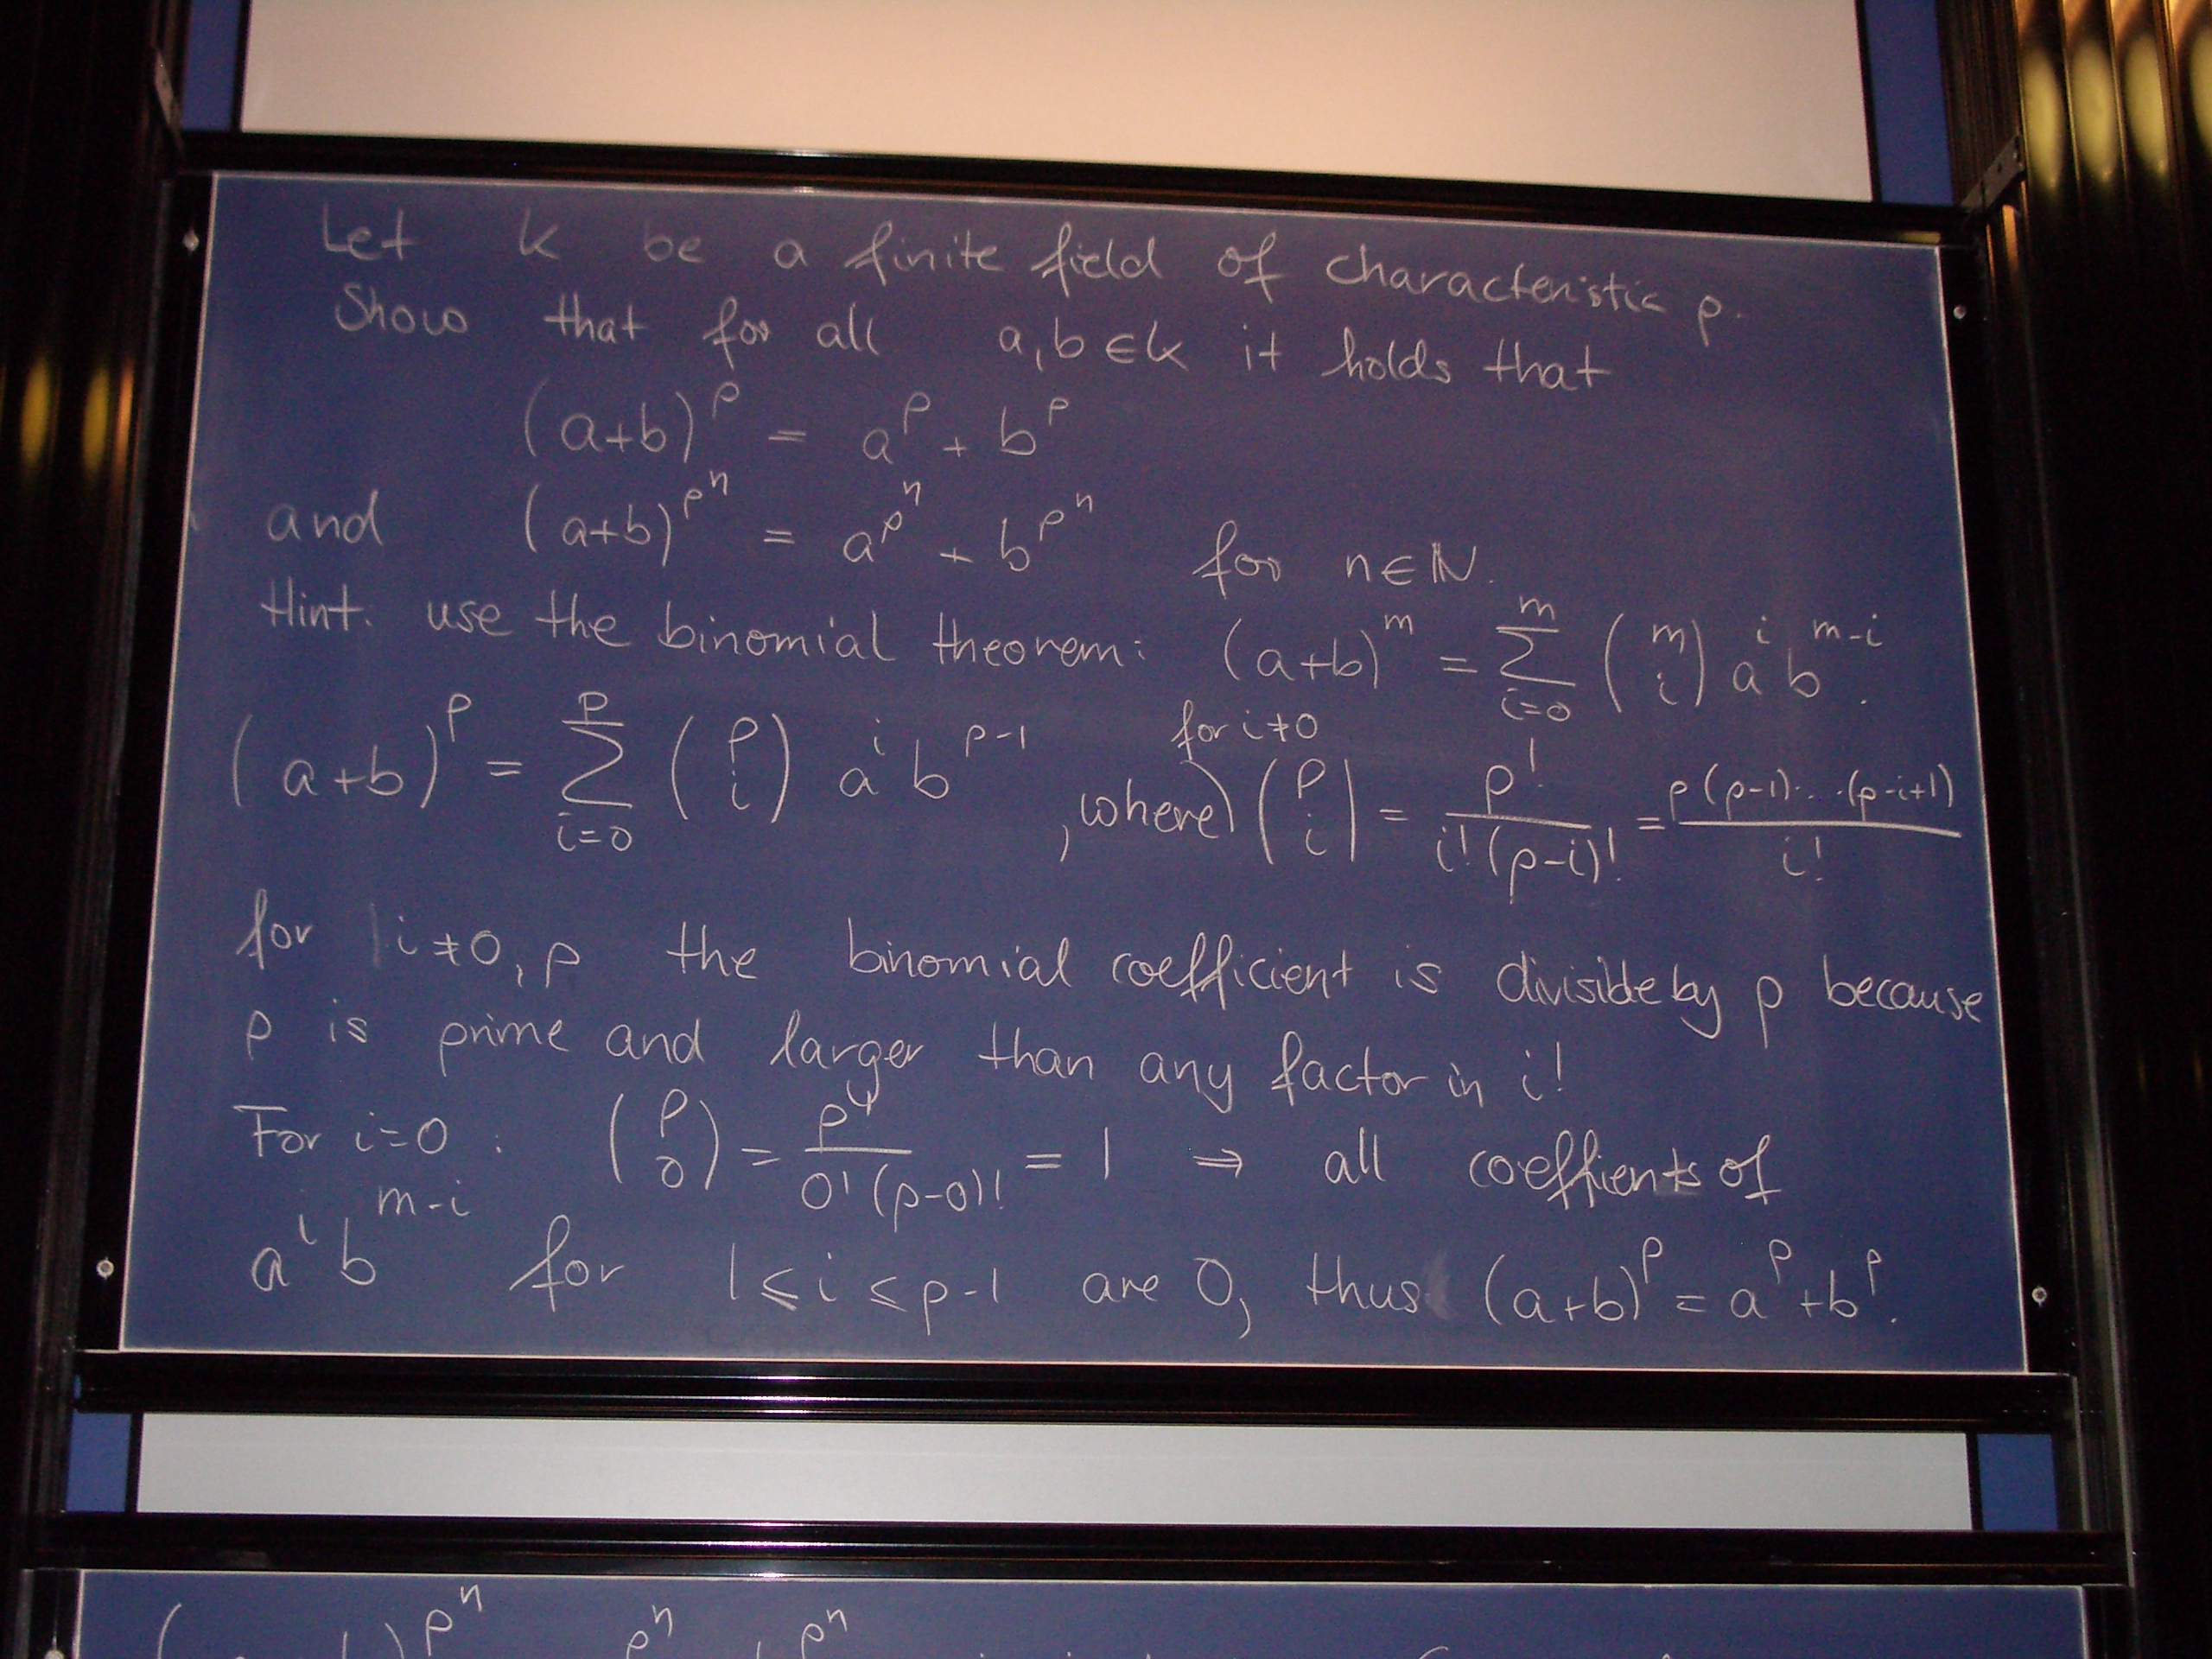 Let k be a finite field of characteristic p.
Show that for all a,b ∈ k it holds that
(a+b)^p = a^p + b^p
and (a+b)^{p^n} = a^{p^n} + b^{p^n} for n ∈ ℕ.
Hint: use the binomial theorem: (a+b)^m = \sum_{i=0}^{m} \binom{m}{i} a^i b^{m-i}.
(a+b)^p = \sum_{i=0}^{p} \binom{p}{i} a^i b^{p-1}, where for i≠0 \binom{p}{i} = \frac{p!}{i!(p-i)!} = \frac{p(p-1)·...·(p-i+1)}{i!}
for i≠0,p the binomial coefficient is divisible by p because
p is prime and larger than any factor in i!
For i=0: \binom{p}{0} = \frac{p!}{0!(p-0)!} = 1 ⇒ all coeffients of
a^i b^{m-i} for 1 ≤ i ≤ p-1 are 0, thus (a+b)^p = a^p + b^p.
p^n p^n p^n